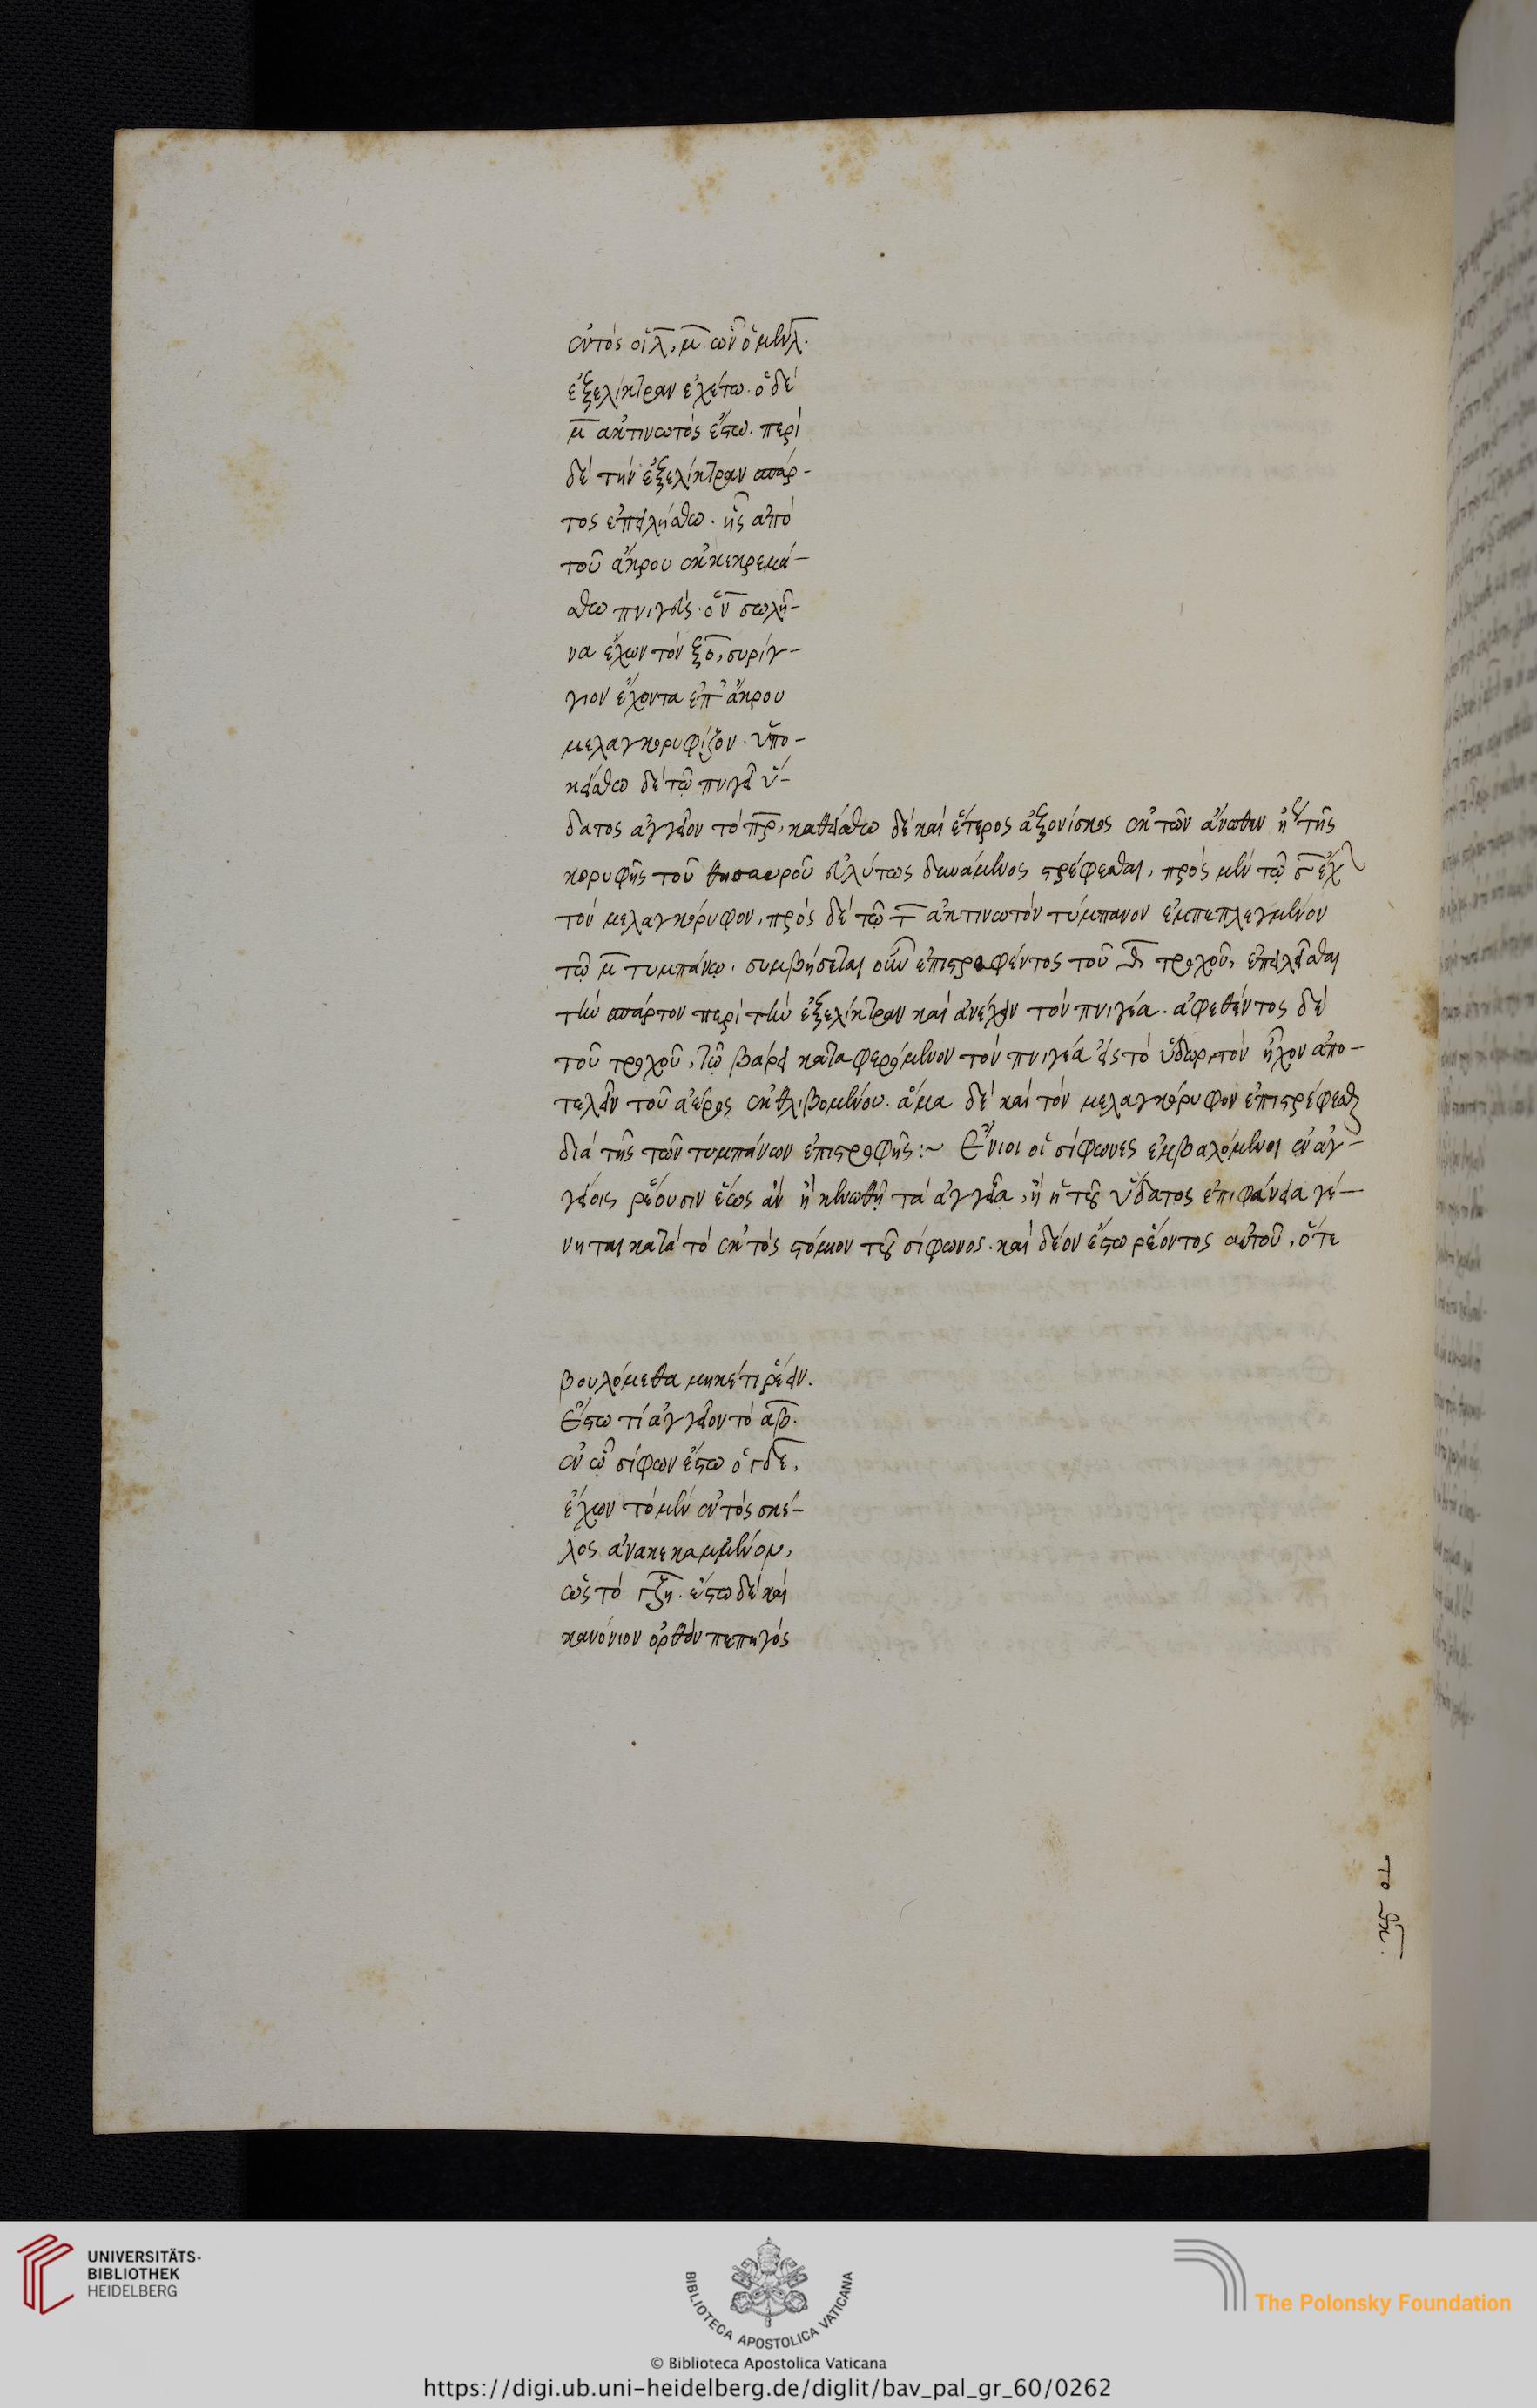 ἐντός οἱ λ, μ. ὧν ὁ μὲν λ.
ἐξελίκτραν ἐχέτω. ὁ δὲ
μ ἀκτινωτός ἔστω. περὶ
δὲ τὴν ἐξελίκτραν σπάρ-
τος ἐπειλήσθω. ἧς ἀπὸ
τοῦ ἄκρου ἐκκεκρεμά-
σθω πνιγεὺς. ὁ ν σωλῆ-
να ἔχων τὸν ξο, συρίγ-
γιον ἔχοντα ἐπ' ἄκρου
μελαγκορυφίζον. ὑπο-
κείσθω δὲ τῷ πνιγεῖ ὕ-
δατος ἀγγεῖον τὸ πρ, καθείσθω δὲ καὶ ἕτερος ἀξονίσκος ἐκ τῶν ἄνωθεν ἢ ἐκ τῆς
κορυφῆς τοῦ θησαυροῦ εὐλύτως δυνάμενος στρέφεσθαι, πρὸς μὲν τῷ σ ἔχων
τὸν μελαγκόρυφον, πρὸς δὲ τῷ τ ἀκτινωτὸν τύμπανον ἐμπεπλεγμένον
τῷ μ τυμπάνῳ. συμβήσεται οὖν ἐπιστραφέντος τοῦ θι τροχοῦ, ἐπειλεῖσθαι
τὴν σπάρτον περὶ τὴν ἐξελίκτραν καὶ ἀνέλκειν τὸν πνιγέα. ἀφεθέντος δὲ
τοῦ τροχοῦ, τῷ βάρει καταφερόμενον τὸν πνιγέα εἰς τὸ ὕδωρ, τὸν ἦχον ἀπο-
τελεῖν τοῦ ἀέρος ἐκθλιβομένου. ἅμα δὲ καὶ τὸν μελαγκόρυφον ἐπιστρέφεσθαι
διὰ τῆς τῶν τυμπάνων ἐπιστροφῆς :~ Ἔνιοι οἱ σίφωνες ἐμβαλόμενοι ἐν ἀγ-
γείοις ῥέουσιν ἕως ἂν ἢ κενωθῇ τὰ ἀγγεῖα, ἢ ἡ τοῦ ὕδατος ἐπιφάνεια γέ-
νηται κατὰ τὸ ἐκτὸς στόμιον τοῦ σίφωνος. καὶ δέον ἔστω ῥέοντος αὐτοῦ, ὅτε
βουλόμεθα μηκέτι ῥέειν.
Ἔστω τί ἀγγεῖον τὸ αβ.
ἐν ᾧ σίφων ἔστω ὁ γδε,
ἔχων τὸ μὲν ἐντός σκέ-
λος ἀνακεκαμμένον,
ὡς τὸ γζη. ἔστω δὲ καὶ
κανόνιον ὀρθὸν πεπηγὸς
UNIVERSITÄTS-
BIBLIOTHEK
HEIDELBERG
BIBLIOTECA APOSTOLICA VATICANA
The Polonsky Foundation
© Biblioteca Apostolica Vaticana
https://digi.ub.uni-heidelberg.de/diglit/bav_pal_gr_60/0262